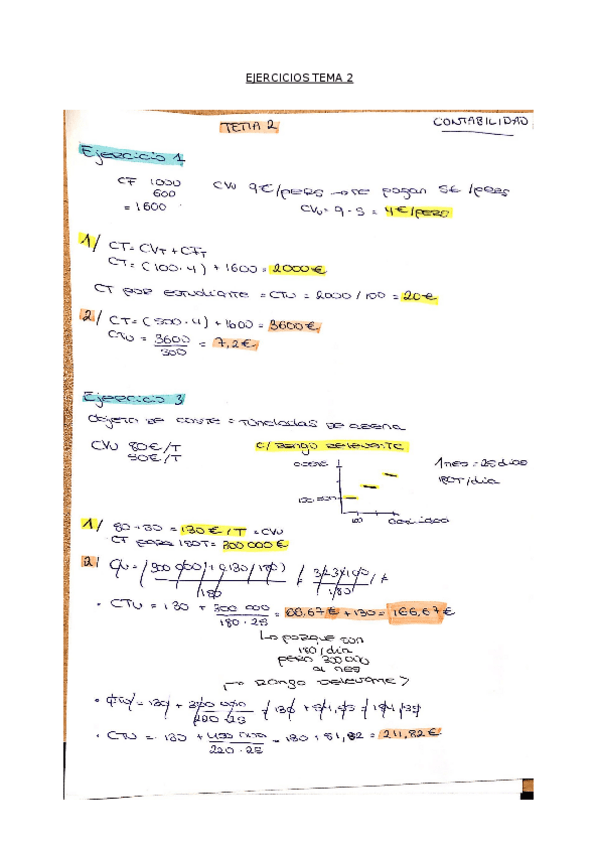 EJERCICIOS TEMA 2
TEMA 2
CONTABILIDAD
Ejercicio 1
CF 1000
600
= 1600
CVU 9€/perso → se pagan 5€/perso
CVU = 9 - 5 = 4€/perso
1/ CT = CVT + CFT
CT = (100 · 4) + 1600 = 2000€
CT por estudiante = CTU = 2000/100 = 20€
2/ CT = (500 · 4) + 1600 = 3600€
CTU = 3600
500
= 7,2€
Ejercicio 3
Objeto de coste = toneladas de arena
CVU 80€/T
50€/T
C/ rango relevante
1 mes = 25 días
180T/día
180
1/ 80 + 50 = 130€/T = CVU
CT para 180T = 300 000€
2/
• CTU = 130 + 300 000
180 · 25
= 66,67€ + 130 = 166,67€
Lo porque son
180/día
pero 300 000
al mes
→ Rango relevante >
• CTU = 130 + 400 000
220 · 25
= 130 + 81,82 = 211,82€